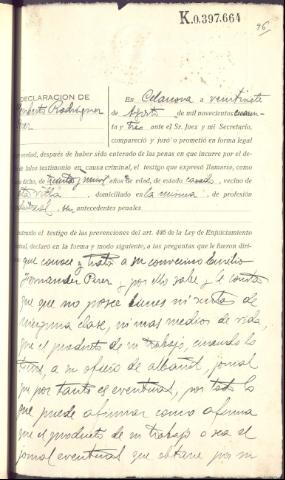 K.0.397.664
96
DECLARACION DE
Rodriguez
En Celanova a veintisiete
de Agosto de mil novecientos cuaren-
ta y tres ante el Sr. Juez y mi Secretario,
compareció y juró o prometió en forma legal
verdad, después de haber sido enterado de las penas en que incurre por el de-
falso testimonio en causa criminal, el testigo que expresó llamarse, como
dicho, de treinta y nueve años de edad, de estado casado, vecino de
Villa domiciliado en la misma, de profesión
sin antecedentes penales.
Enterado el testigo de las prevenciones del art. 446 de la Ley de Enjuiciamiento
Criminal, declaró en la forma y modo siguiente, a las preguntas que le fueron diri-
que conoce y trata a su convecino
Fernandez Perez y por ello sabe y le consta
que que no posee bienes ni rentas de
ninguna clase, ni mas medios de vida,
que el producto de su trabajo, cuando lo
tiene, a su oficio de albañil, jornal
que por tanto es eventual, por todo lo
que puede afirmar como afirma
que el producto de su trabajo o sea el
jornal eventual que obtiene por su